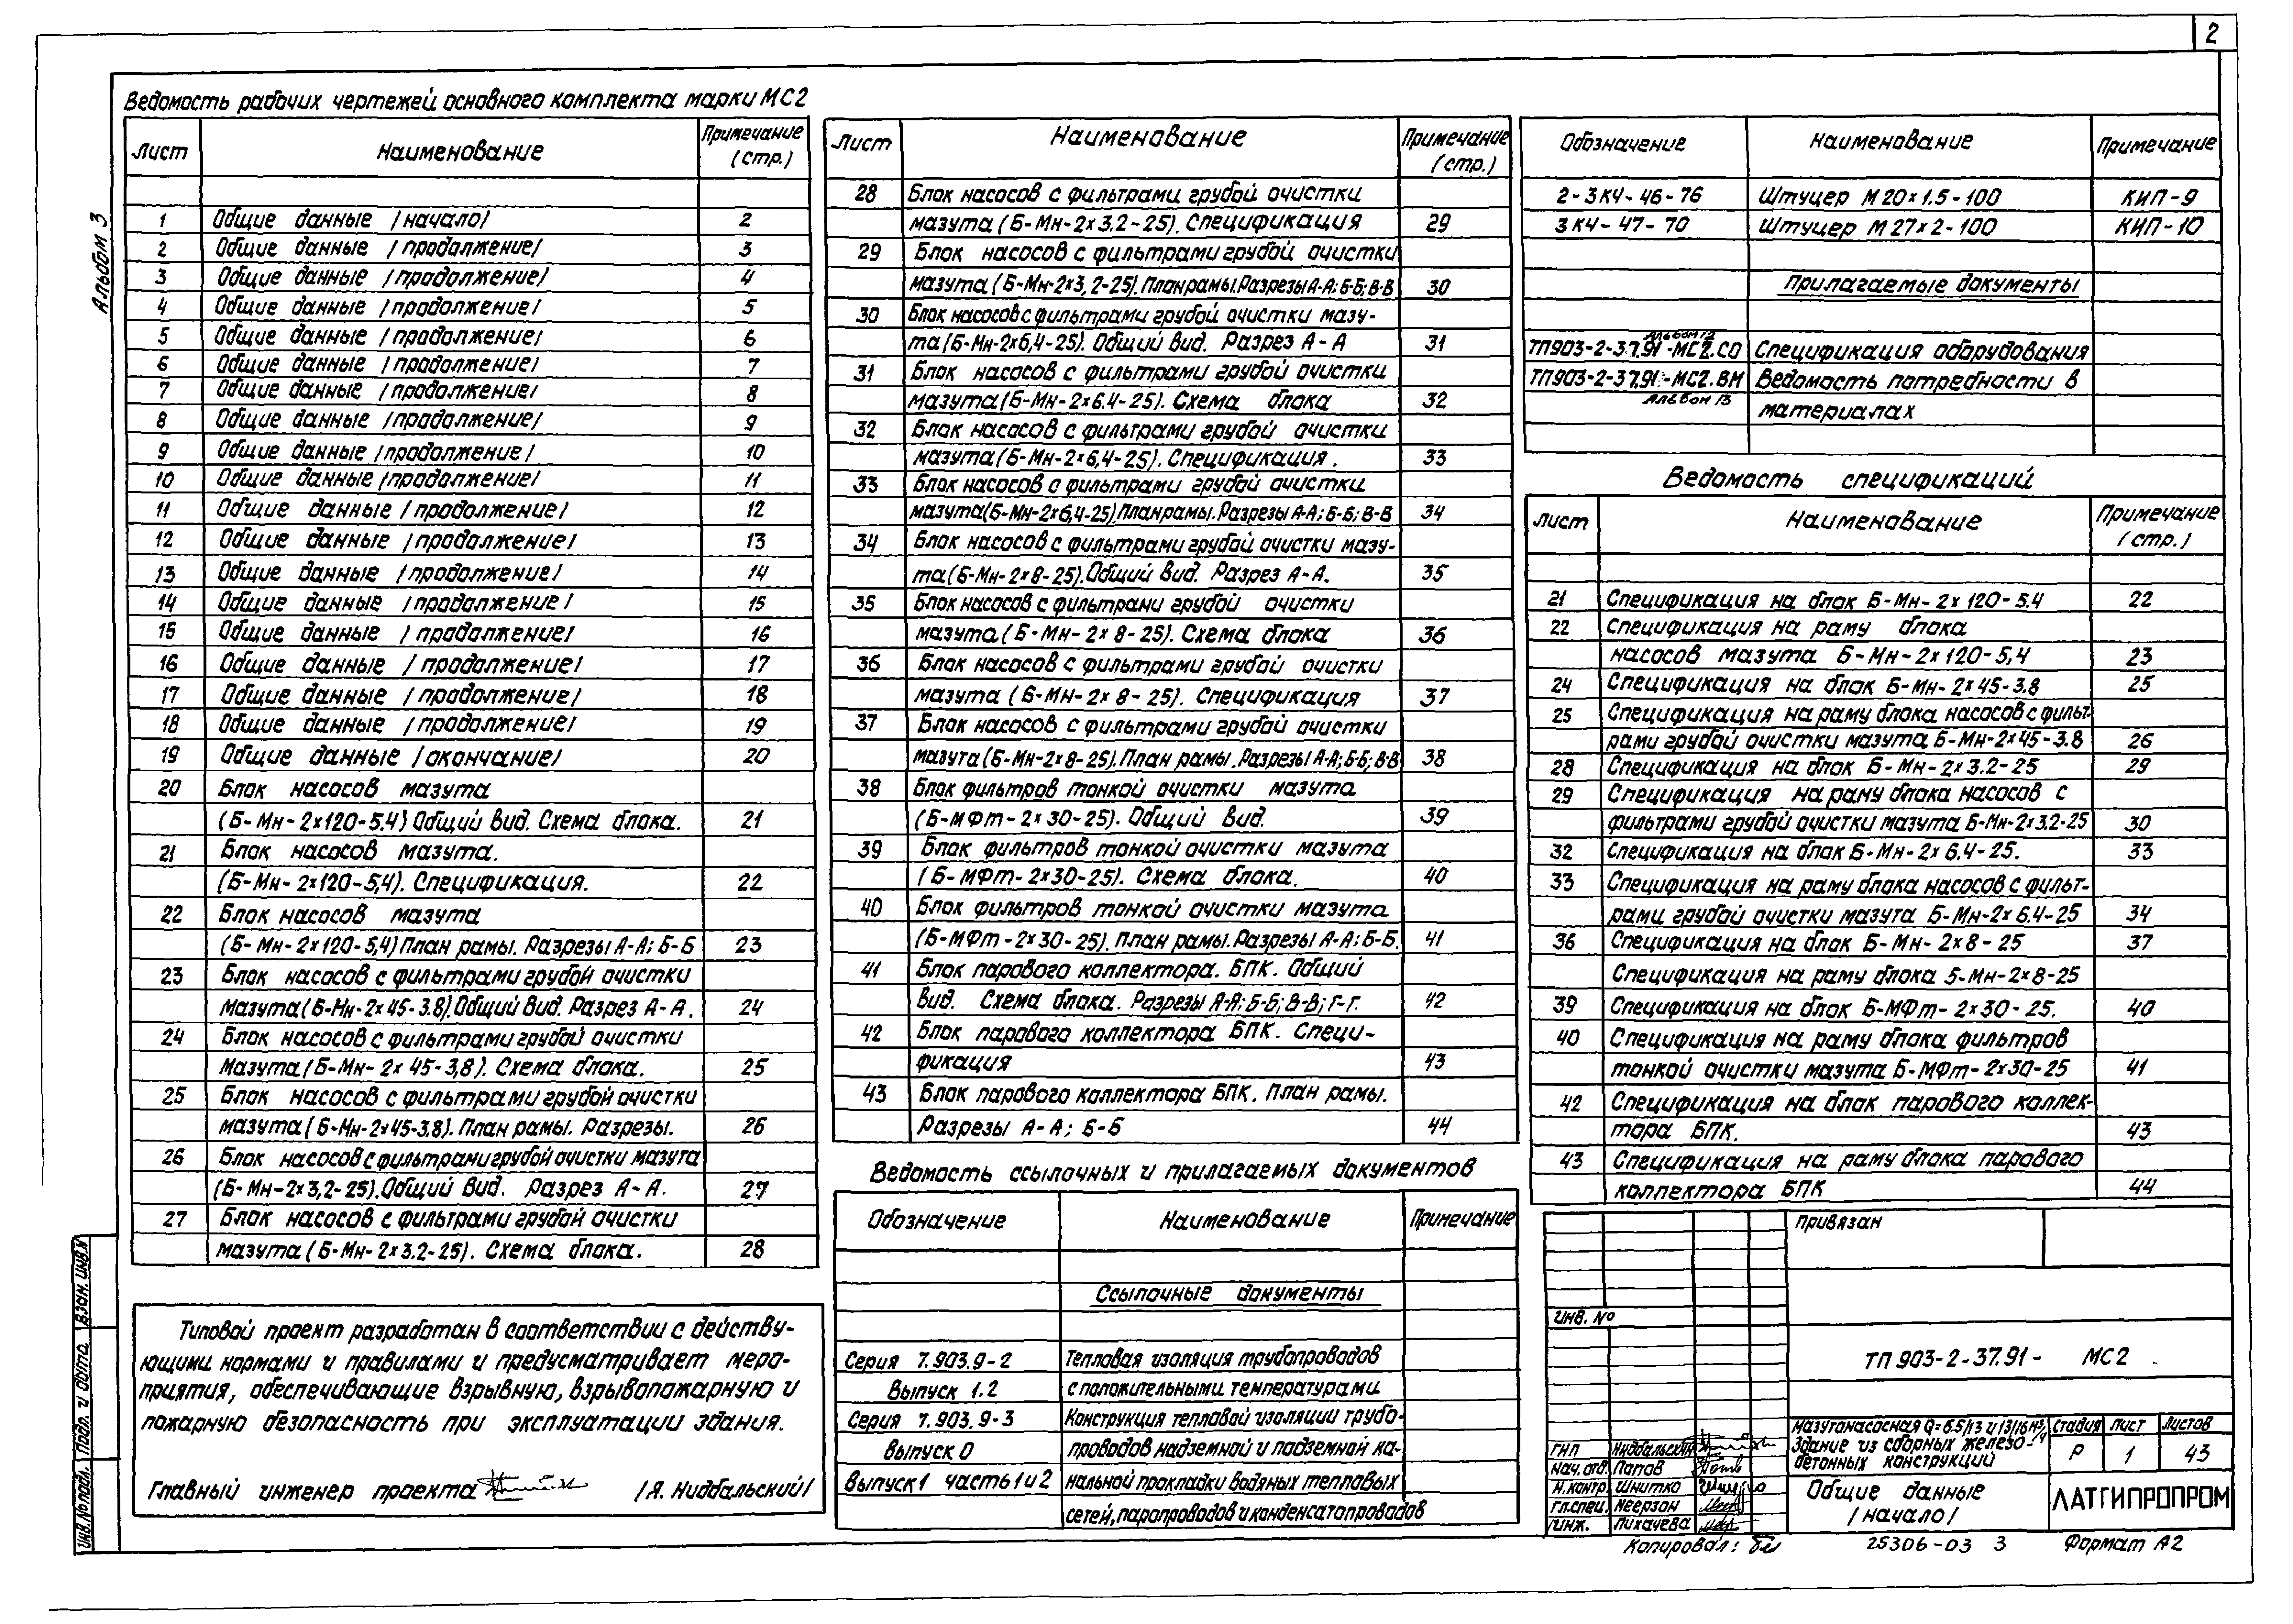 2
Альбом 3
Ведомость рабочих чертежей основного комплекта марки МС2
Лист Наименование Примечание (стр.)
1 Общие данные /начало/ 2
2 Общие данные /продолжение/ 3
3 Общие данные /продолжение/ 4
4 Общие данные /продолжение/ 5
5 Общие данные /продолжение/ 6
6 Общие данные /продолжение/ 7
7 Общие данные /продолжение/ 8
8 Общие данные /продолжение/ 9
9 Общие данные /продолжение/ 10
10 Общие данные /продолжение/ 11
11 Общие данные /продолжение/ 12
12 Общие данные /продолжение/ 13
13 Общие данные /продолжение/ 14
14 Общие данные /продолжение/ 15
15 Общие данные /продолжение/ 16
16 Общие данные /продолжение/ 17
17 Общие данные /продолжение/ 18
18 Общие данные /продолжение/ 19
19 Общие данные /окончание/ 20
20 Блок насосов мазута
(Б-Мн-2х120-5.4) Общий вид. Схема блока. 21
21 Блок насосов мазута.
(Б-Мн-2х120-5,4). Спецификация. 22
22 Блок насосов мазута
(Б-Мн-2х120-5,4) План рамы. Разрезы А-А; Б-Б 23
23 Блок насосов с фильтрами грубой очистки
мазута (Б-Мн-2х45-3.8). Общий вид. Разрез А-А. 24
24 Блок насосов с фильтрами грубой очистки
мазута (Б-Мн-2х45-3,8). Схема блока. 25
25 Блок насосов с фильтрами грубой очистки
мазута (Б-Мн-2х45-3.8). План рамы. Разрезы. 26
26 Блок насосов с фильтрами грубой очистки мазута
(Б-Мн-2х3,2-25). Общий вид. Разрез А-А. 27
27 Блок насосов с фильтрами грубой очистки
мазута (Б-Мн-2х3.2-25). Схема блока. 28
Типовой проект разработан в соответствии с действу-
ющими нормами и правилами и предусматривает меро-
приятия, обеспечивающие взрывную, взрывопожарную и
пожарную безопасность при эксплуатации здания.
Главный инженер проекта /Я. Нидбальский/
Лист Наименование Примечание (стр.)
28 Блок насосов с фильтрами грубой очистки
мазута (Б-Мн-2х3,2-25). Спецификация 29
29 Блок насосов с фильтрами грубой очистки
мазута (Б-Мн-2х3,2-25). План рамы. Разрезы А-А; Б-Б; В-В 30
30 Блок насосов с фильтрами грубой очистки мазу-
та (Б-Мн-2х6,4-25). Общий вид. Разрез А-А 31
31 Блок насосов с фильтрами грубой очистки
мазута (Б-Мн-2х6.4-25). Схема блока 32
32 Блок насосов с фильтрами грубой очистки
мазута (Б-Мн-2х6,4-25). Спецификация. 33
33 Блок насосов с фильтрами грубой очистки
мазута (Б-Мн-2х6,4-25). План рамы. Разрезы А-А; Б-Б; В-В 34
34 Блок насосов с фильтрами грубой очистки мазу-
та (Б-Мн-2х8-25). Общий вид. Разрез А-А. 35
35 Блок насосов с фильтрами грубой очистки
мазута (Б-Мн-2х8-25). Схема блока 36
36 Блок насосов с фильтрами грубой очистки
мазута (Б-Мн-2х8-25). Спецификация 37
37 Блок насосов с фильтрами грубой очистки
мазута (Б-Мн-2х8-25). План рамы. Разрезы А-А; Б-Б; В-В 38
38 Блок фильтров тонкой очистки мазута
(Б-МФт-2х30-25). Общий вид. 39
39 Блок фильтров тонкой очистки мазута
(Б-МФт-2х30-25). Схема блока. 40
40 Блок фильтров тонкой очистки мазута
(Б-МФт-2х30-25). План рамы. Разрезы А-А; Б-Б. 41
41 Блок парового коллектора. БПК. Общий
вид. Схема блока. Разрезы А-А; Б-Б; В-В; Г-Г. 42
42 Блок парового коллектора БПК. Специ-
фикация 43
43 Блок парового коллектора БПК. План рамы.
Разрезы А-А; Б-Б 44
Ведомость ссылочных и прилагаемых документов
Обозначение Наименование Примечание
Ссылочные документы
Серия 7.903.9-2 Тепловая изоляция трубопроводов
Выпуск 1.2 с положительными температурами
Серия 7.903.9-3 Конструкция тепловой изоляции трубо-
Выпуск 0 проводов надземной и подземной ка-
Выпуск 1 часть 1 и 2 нальной прокладки водяных тепловых
сетей, паропроводов и конденсатопроводов
Обозначение Наименование Примечание
2-3К4-46-76 Штуцер М20х1.5-100 КИП-9
3К4-47-70 Штуцер М27х2-100 КИП-10
Прилагаемые документы
Альбом 12
ТП903-2-37.91-МС2.СО Спецификация оборудования
ТП903-2-37.91-МС2.ВМ Ведомость потребности в
Альбом 13 материалах
Ведомость спецификаций
Лист Наименование Примечание (стр.)
21 Спецификация на блок Б-Мн-2х120-5.4 22
22 Спецификация на раму блока
насосов мазута Б-Мн-2х120-5,4 23
24 Спецификация на блок Б-Мн-2х45-3.8 25
25 Спецификация на раму блока насосов с фильт-
рами грубой очистки мазута Б-Мн-2х45-3.8 26
28 Спецификация на блок Б-Мн-2х3.2-25 29
29 Спецификация на раму блока насосов с
фильтрами грубой очистки мазута Б-Мн-2х3.2-25 30
32 Спецификация на блок Б-Мн-2х6.4-25. 33
33 Спецификация на раму блока насосов с фильт-
рами грубой очистки мазута Б-Мн-2х6.4-25 34
36 Спецификация на блок Б-Мн-2х8-25 37
Спецификация на раму блока Б-Мн-2х8-25
39 Спецификация на блок Б-МФт-2х30-25. 40
40 Спецификация на раму блока фильтров
тонкой очистки мазута Б-МФт-2х30-25 41
42 Спецификация на блок парового коллек-
тора БПК. 43
43 Спецификация на раму блока парового
коллектора БПК 44
Привязан
Инв. №
ТП 903-2-37.91- МС2
Мазутонасосная Q=6.5/13 и 13/16 м³/ч
Здание из сборных железо-
бетонных конструкций
Стадия Лист Листов
Р 1 43
ГИП Нидбальский
Нач. отд. Попов
Н. контр. Шнитко
Гл. спец. Меерзон
Инж. Лихачева
Общие данные
/начало/
ЛАТГИПРОПРОМ
Копировал:
25306-03 3
Формат А2
Взам. инв. №
Подп. и дата
Инв. № подл.